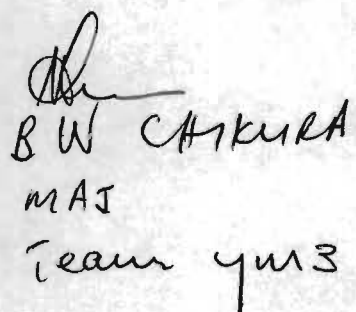 B W CHIKURA
MAJ
Team ym3